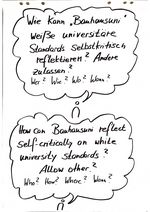 Wie kann "Bauhausuni"
weiße universitäre
Standards selbstkritisch
reflektieren? Andere
zulassen?
Wer? Wie? Wo? Wann?
How can Bauhausuni reflect
self-critically on white
university standards?
Allow other?
Who? How? Where? When?